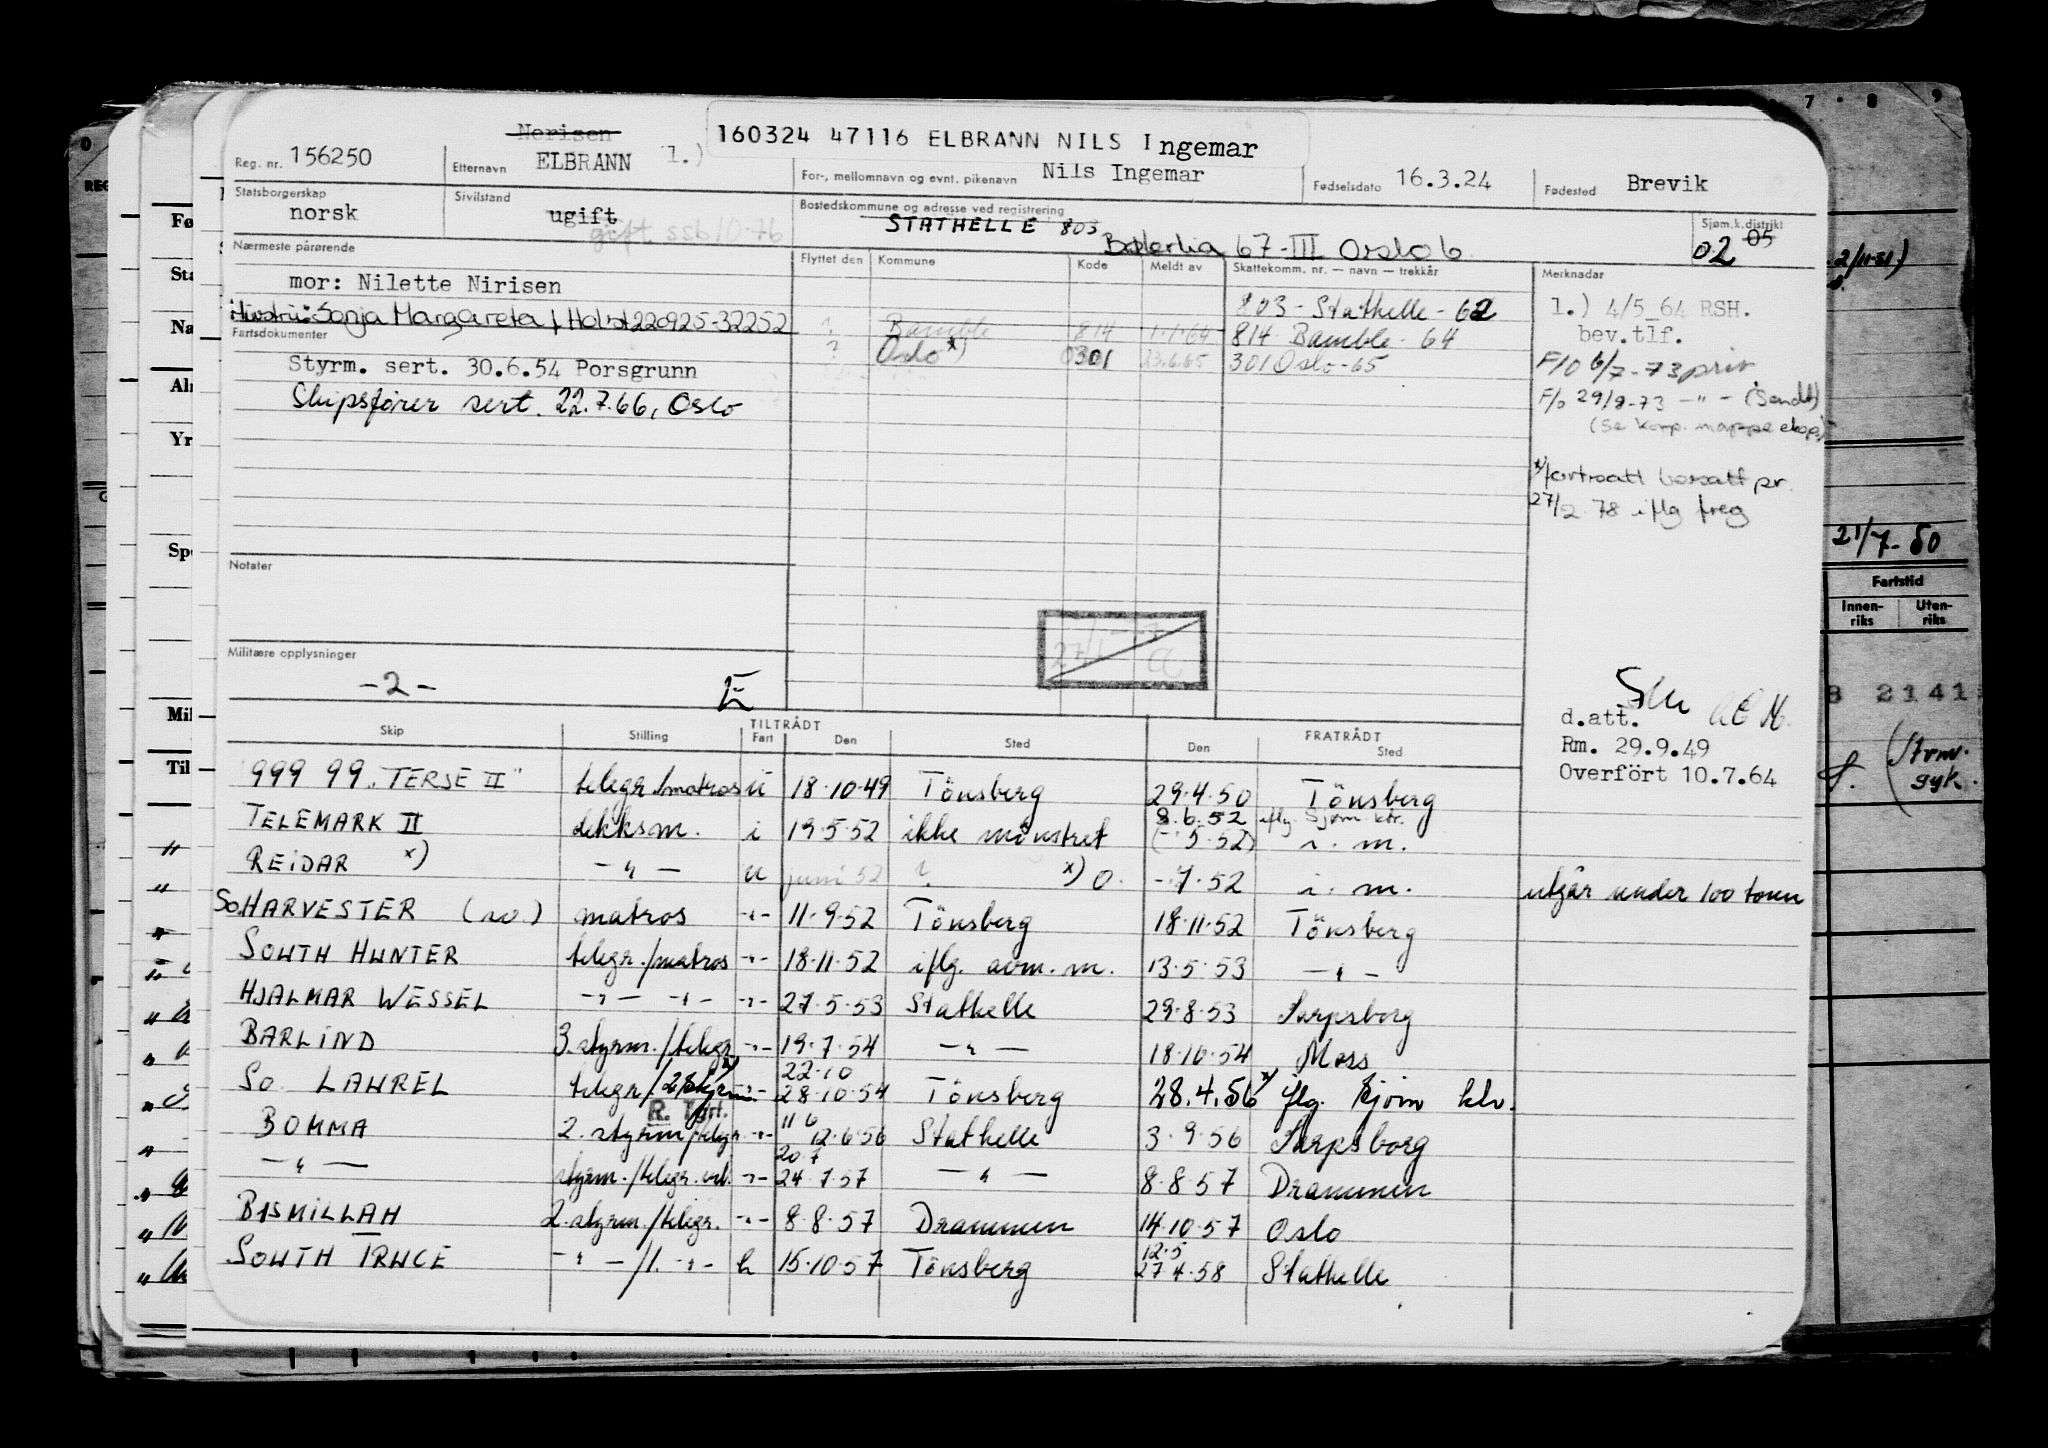 Nerisen
160324 47116 ELBRANN NILS Ingemar
Reg. nr. 156250 Etternavn ELBRANN 1.) For-, mellomnavn og evnt. pikenavn Nils Ingemar Fødselsdato 16.3.24 Fødested Brevik
Statsborgerskap norsk Sivilstand ugift Bostedskommune og adresse ved registrering STATHELLE 803 Sjøm.k.distrikt 05
gift ssb 10-76 67-III Oslo 6 02
Nærmeste pårørende Flyttet den Kommune Kode Meldt av Skattekomm. nr. — navn — trekkår Merknader
mor: Nilette Nirisen 803 - Stathelle - 62 1.) 4/5_64 RSH.
Hustru: Sonja Margareta f. Holst 220925-32252 ? Bamble 814 1.1.64 814 Bamble - 64 bev.tlf.
Fartsdokumenter ? Oslo x) 0301 23.6.65 301 Oslo - 65 F/O 6/7-73 priv
Styrm. sert. 30.6.54 Porsgrunn
Skipsfører sert. 22.7.66, Oslo F/o 29/8-73 -"- (Sendt)
(Se korp. mappe eksp.)
x) fortsatt bosatt pr.
27/2 78 iflg freg
Notater
27/1 a
Militære opplysninger
-2- E
d.att.
Rm. 29.9.49
Overfört 10.7.64
Skip Stilling TILTRÅDT Fart Den Sted FRATRÅDT Den Sted
999 99 "TERJE II" telegr./matros u 18.10.49 Tönsberg 29.4.50 Tönsberg
TELEMARK II dekksm. i 19.5.52 ikke mönstret 8.6.52 iflg. Sjøm. ktr. (- 5.52) i. m.
" REIDAR x) -"- u juni 52 ? x) 0. -.7.52 i. m. utgår under 100 tonn
" So. HARVESTER (so.) matros -"- 11.9.52 Tönsberg 18.11.52 Tönsberg
" SOUTH HUNTER telegr./matros -"- 18.11.52 iflg. avm. m. 13.5.53 -"-
HJALMAR WESSEL -"- -"- -"- 27.5.53 Stathelle 29.8.53 Sarpsborg
BARLIND 3. styrm./telegr. -"- 19.7.54 -"- 18.10.54 Moss
So. LAUREL telegr./2 styrm. -"- 22.10 28.10.54 Tönsberg 28.4.56 x) iflg. Sjøm ktr.
BOMMA R. Tgrt. 2. styrm/telegr. -"- 11 6 12.6.56 Stathelle 3.9.56 Sarpsborg
-"- styrm./telegr. vet. -"- 20 7 24.7.57 -"- 8.8.57 Drammen
BISMILLAH 2. styrm./telegr. -"- 8.8.57 Drammen 14.10.57 Oslo
SOUTH TRUCE -"-/1. -"- h 15.10.57 Tönsberg 12.5 27.4.58 Stathelle
7 8 9
2/11-51)
21/7-50
Fartstid
Innen-riks Uten-riks
8 2141
(Strm. gyk.
0
REG
Fø
Sta
Na
Al
Yr
Sp
Mil
Til